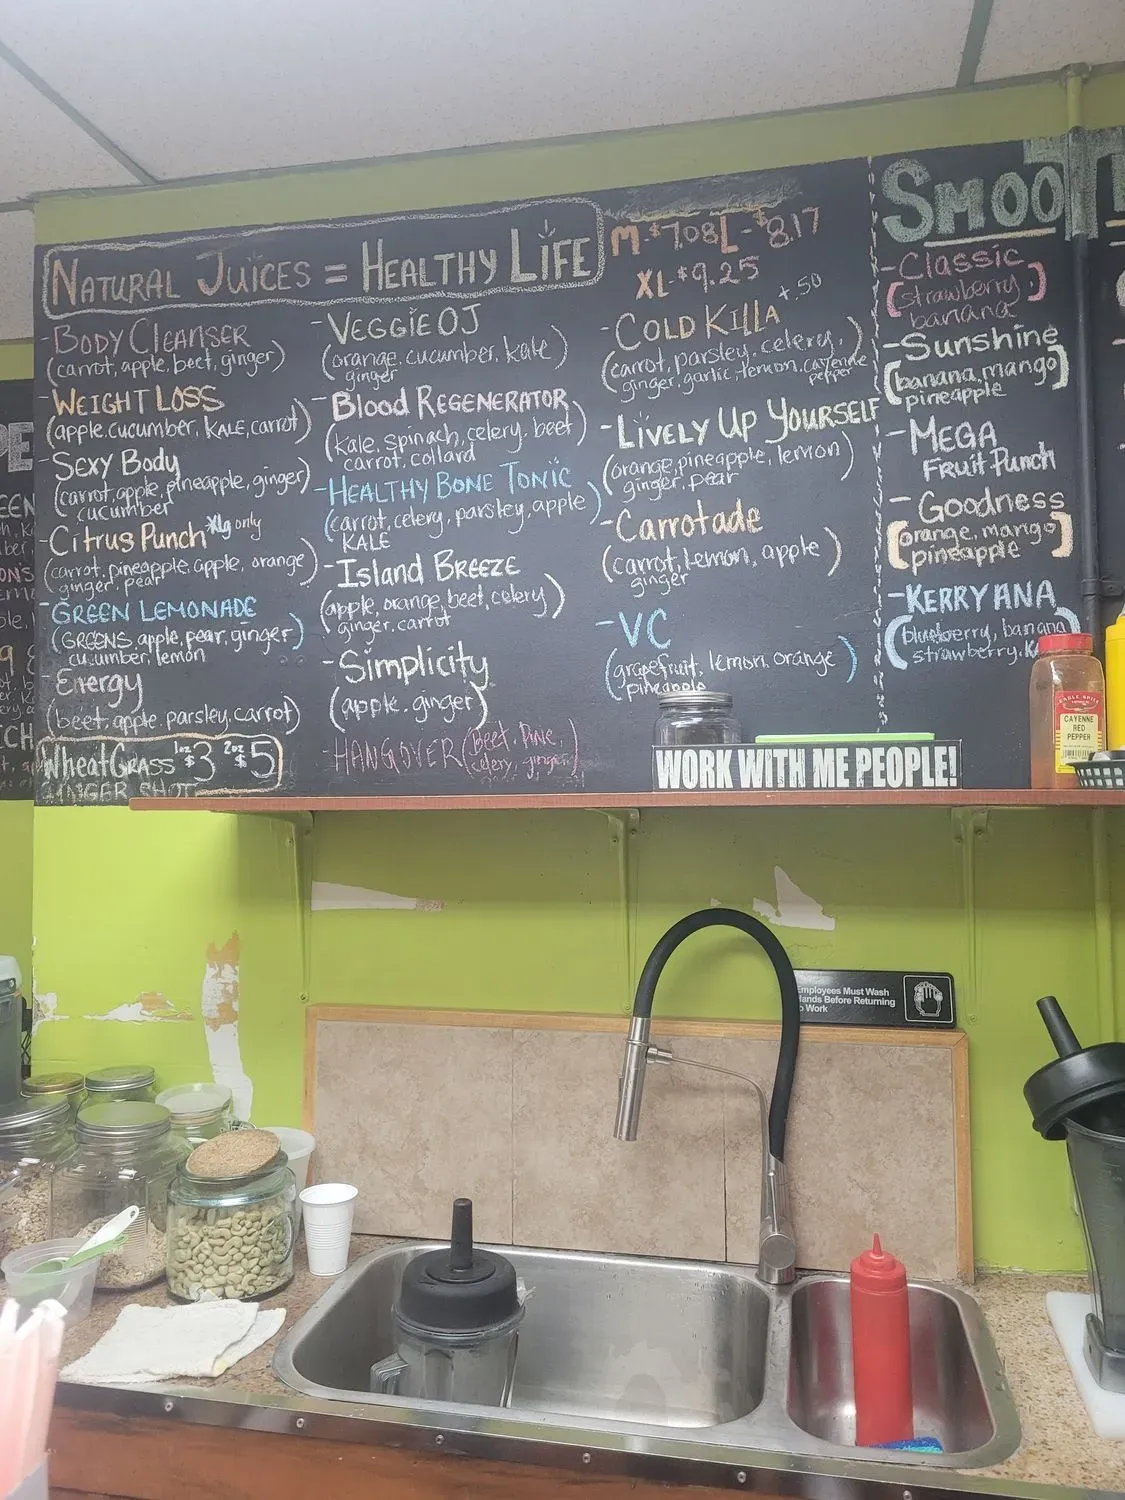 NATURAL JUICES = HEALTHY LIFE
M-$7.08 L-$8.17
XL-$9.25
-BODY CLEANSER
(carrot, apple, beet, ginger)
-WEIGHT LOSS
(apple, cucumber, KALE, carrot)
-Sexy Body
(carrot, apple, pineapple, ginger)
cucumber
-Citrus Punch *Xlg only
(carrot, pineapple, apple, orange)
ginger, pear
-GREEN LEMONADE
(GREENS, apple, pear, ginger)
cucumber, lemon
-Energy
(beet, apple, parsley, carrot)
WheatGRASS 1oz $3 2oz $5
GINGER SHOT
-VEGGIE OJ
(orange, cucumber, kale)
ginger
-Blood REGENERATOR
(kale, spinach, celery, beet)
carrot, collard
-HEALTHY BONE TONIC
(carrot, celery, parsley, apple)
KALE
-Island BREEZE
(apple, orange, beet, celery)
ginger, carrot
-Simplicity
(apple, ginger)
-HANGOVER (Beet, Pine,
celery, ginger)
-COLD KILLA +.50
(carrot, parsley, celery,)
ginger, garlic, lemon, cayenne
pepper
-LIVELY UP YOURSELF
(orange, pineapple, lemon)
ginger, pear
-Carrotade
(carrot, lemon, apple)
ginger
-VC
(grapefruit, lemon, orange)
pineapple
SMOOT
-Classic
(strawberry,)
banana
-Sunshine
(banana, mango)
pineapple
-MEGA
FRUIT PUNCH
-Goodness
(orange, mango)
pineapple
-KERRYANA
(blueberry, banana)
strawberry,
WORK WITH ME PEOPLE!
CAYENNE
RED
PEPPER
Employees Must Wash
Hands Before Returning
to Work